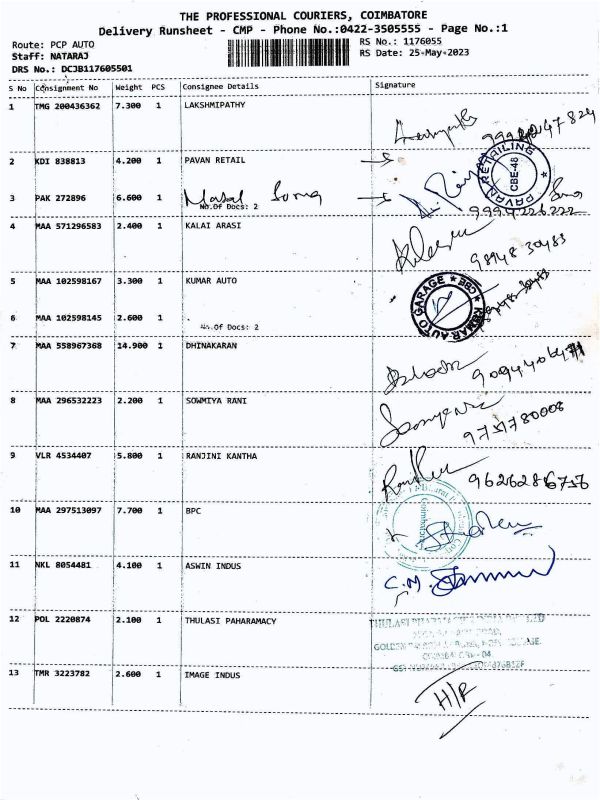 THE PROFESSIONAL COURIERS, COIMBATORE
Delivery Runsheet - CMP - Phone No.:0422-3505555 - Page No.:1
Route: PCP AUTO
Staff: NATARAJ
DRS No.: DCJB117605501
RS No.: 1176055
RS Date: 25-May-2023
S No Consignment No Weight PCS Consignee Details Signature
1 TMG 200436362 7.300 1 LAKSHMIPATHY
2 KDI 838813 4.200 1 PAVAN RETAIL
PAVAN RETAILING
CBE-48
3 PAK 272896 6.600 1
No.Of Docs: 2
9994226222
4 MAA 571296583 2.400 1 KALAI ARASI
98948 30483
5 MAA 102598167 3.300 1 KUMAR AUTO
KUMAR AUTO GARAGE
6 MAA 102598145 2.600 1
No.Of Docs: 2
7 MAA 558967368 14.900 1 DHINAKARAN
8 MAA 296532223 2.200 1 SOWMIYA RANI
9751780008
9 VLR 4534407 5.800 1 RANJINI KANTHA
10 MAA 297513097 7.700 1 BPC
Coimbatore
11 NKL 8054481 4.100 1 ASWIN INDUS
C.M.
12 POL 2220874 2.100 1 THULASI PAHARAMACY
13 TMR 3223782 2.600 1 IMAGE INDUS
H/R